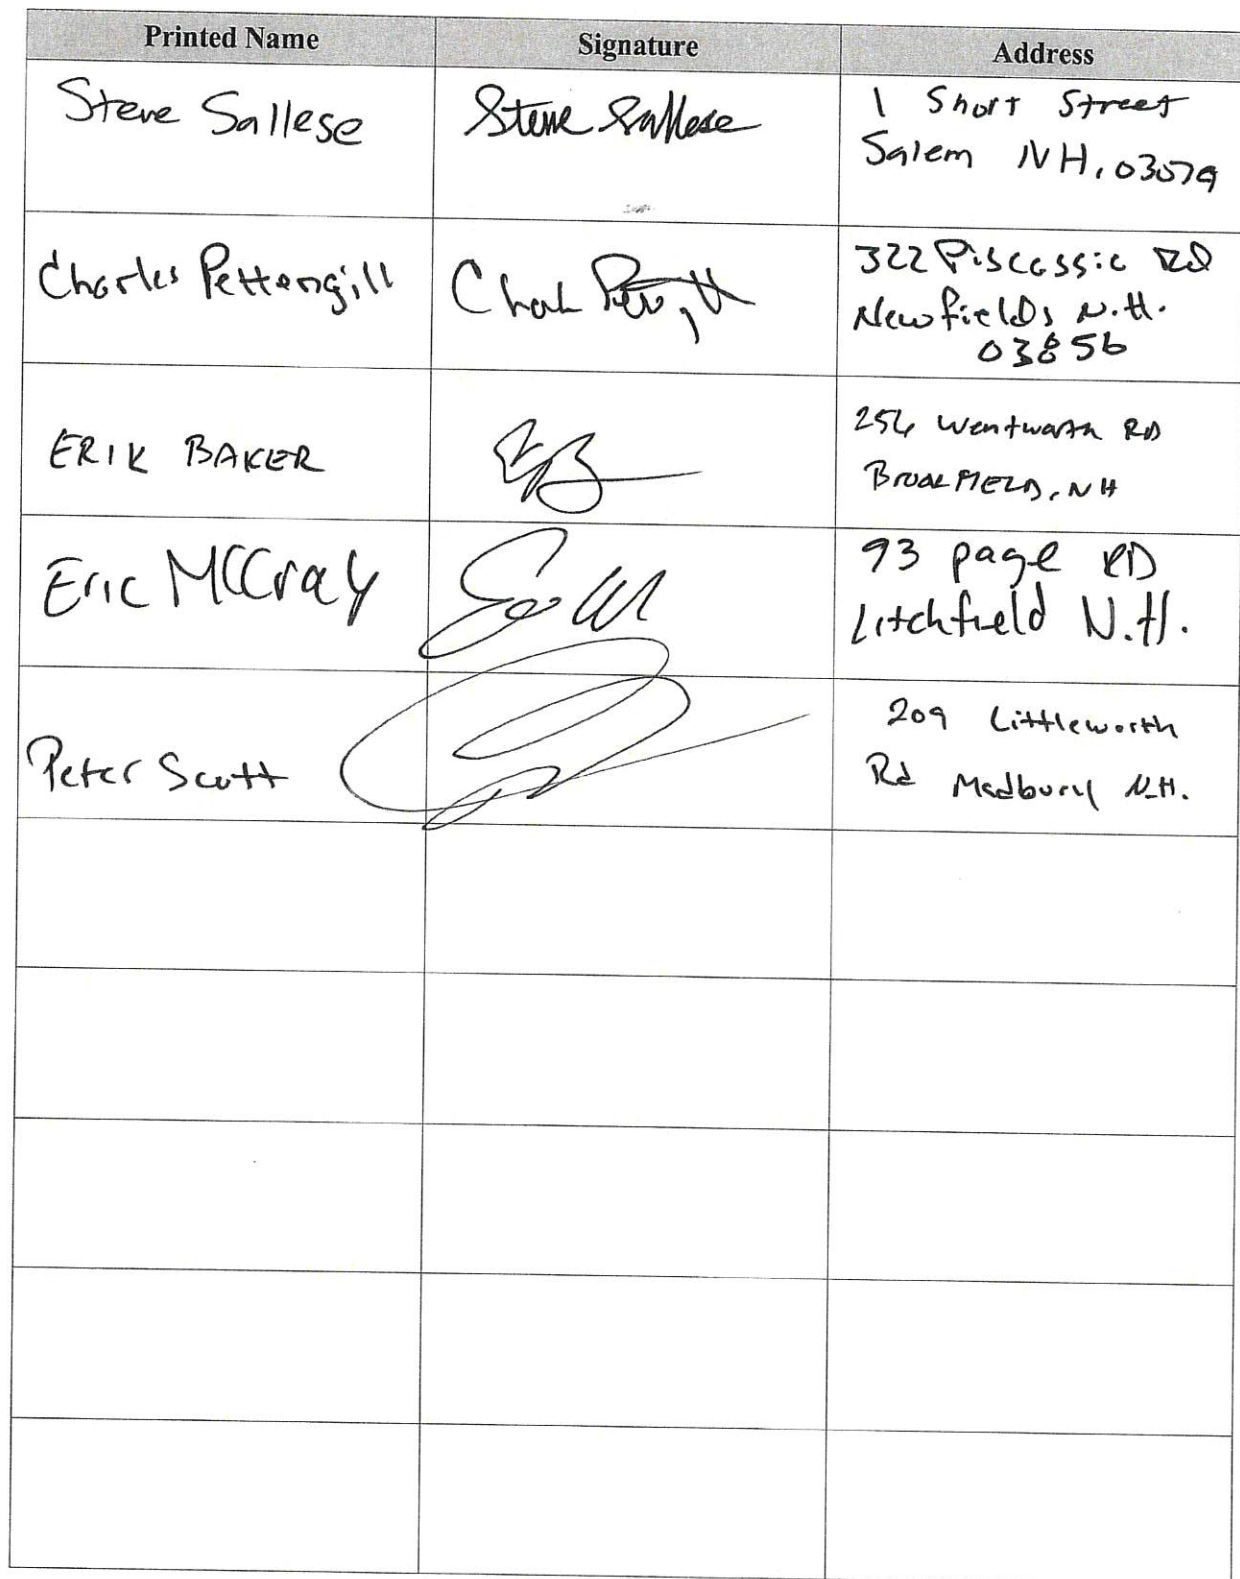 Printed Name Signature Address
Steve Sallese Steve Sallese 1 Short Street
Salem NH, 03079
Charles Pettengill 322 Piscassic Rd
Newfields N.H.
03856
ERIK BAKER 256 Wentworth RD
BROOKFIELD, NH
Eric MCCray 93 page RD
Litchfield N.H.
Peter Scott 209 Littleworth
Rd Madbury N.H.